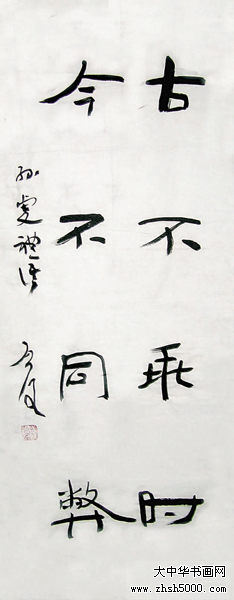 古不乖时
今不同弊
孙虔礼语
大中华书画网
www.zhsh5000.com